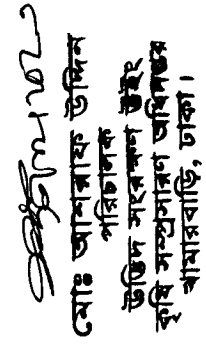 মোঃ উদ্দিন
পরিচালক
উদ্ভিদ সংরক্ষণ উইং
কৃষি সম্প্রসারণ অধিদপ্তর
খামারবাড়ী, ঢাকা।